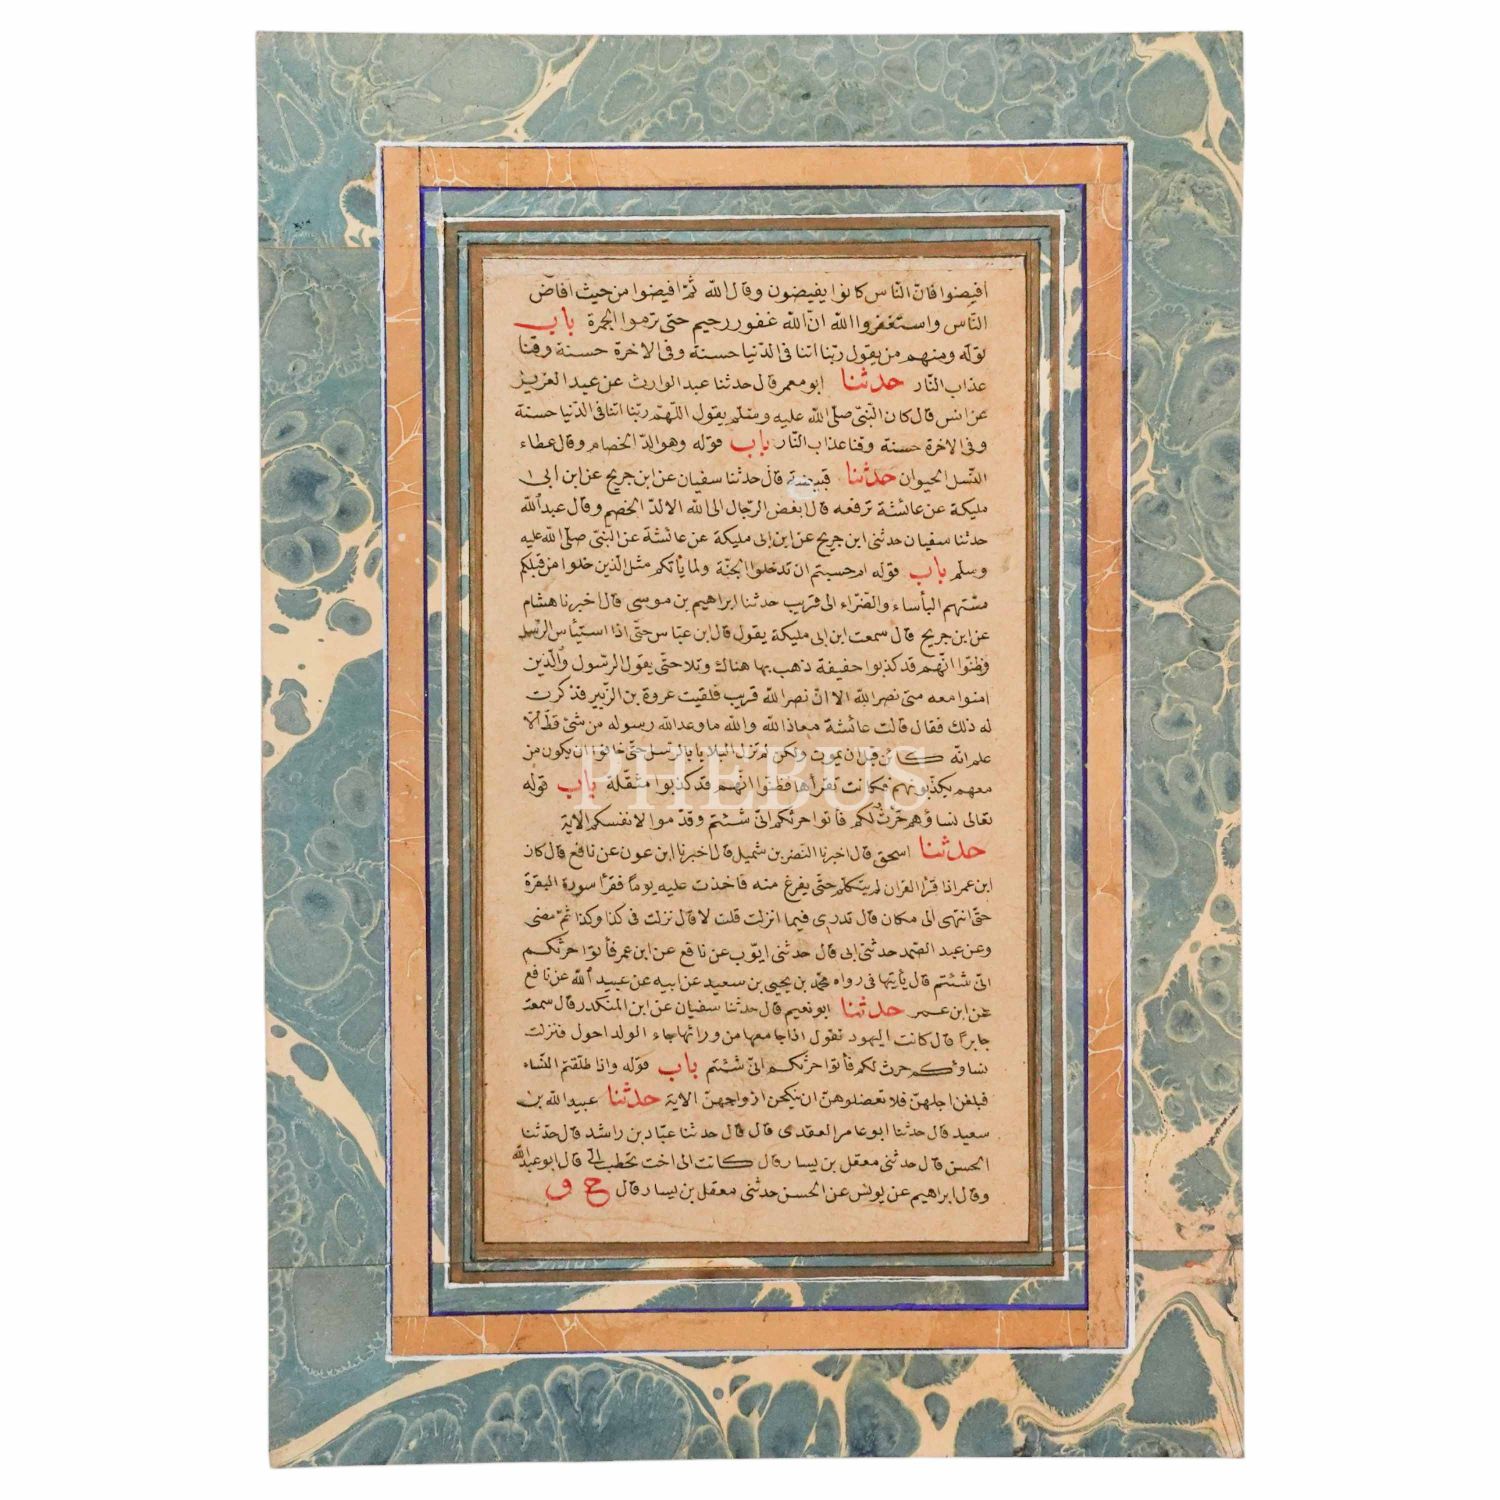 افيضوا فانّ النّاس كانوا يفيضون وقال الله ثمّ افيضوا من حيث افاض
النّاس واستغفروا الله انّ الله غفور رحيم حتى ترموا الجمرة باب
قوله ومنهم من يقول ربّنا اتنا فى الدّنيا حسنة وفى الاخرة حسنة وقنا
عذاب النّار حدثنا ابو معمر قال حدثنا عبد الوارث عن عبد العزيز
عن انس قال كان النّبىّ صلى الله عليه وسلّم يقول اللّهمّ ربّنا اتنا فى الدّنيا حسنة
وفى الاخرة حسنة وقنا عذاب النّار باب قوله وهو الدّ الخصام وقال عطاء
النّسل الحيوان حدثنا قبيصة قال حدثنا سفيان عن ابن جريج عن ابن ابى
مليكة عن عائشة ترفعه قال ابغض الرّجال الى الله الالدّ الخصم وقال عبد الله
حدثنا سفيان حدثنى ابن جريج عن ابن ابى مليكة عن عائشة عن النّبىّ صلّى الله عليه
وسلم باب قوله ام حسبتم ان تدخلوا الجنّة ولما يأتكم مثل الّذين خلوا من قبلكم
مسّتهم البأساء والضّرّاء الى قريب حدثنا ابراهيم بن موسى قال اخبرنا هشام
عن ابن جريج قال سمعت ابن ابى مليكة يقول قال ابن عبّاس حتّى اذا استيأس الرّسل
وظنّوا انّهم قد كذبوا خفيفة ذهب بها هناك وتلا حتّى يقول الرّسول والّذين
امنوا معه متى نصر الله الا انّ نصر الله قريب فلقيت عروة بن الزّبير فذكرت
له ذلك فقال قالت عائشة معاذ الله والله ما وعد الله رسوله من شئ قطّ الّا
علم انّه كائن قبل ان يموت ولكن لم تزل البلايا بالرّسل حتّى خافوا ان يكون من
معهم يكذّبونهم فكانت تقرأها فظنّوا انّهم قد كذبوا مثقّلة باب قوله
تعالى نساؤهم حرث لكم فأتوا حرثكم انّى شئتم وقدّموا لانفسكم الاية
حدثنا اسحق قال اخبرنا النضر بن شميل قال اخبرنا ابن عون عن نافع قال كان
ابن عمر اذا قرأ القران لم يتكلّم حتّى يفرغ منه فاخذت عليه يوماً فقرأ سورة البقرة
حتّى انتهى الى مكان قال تدرى فيما انزلت قلت لا قال نزلت فى كذا وكذا ثمّ مضى
وعن عبد الصّمد حدثنى ابى قال حدثنى ايّوب عن نافع عن ابن عمر فأتوا حرثكم
انّى شئتم قال يأتيها فى رواه محمّد بن يحيى بن سعيد عن ابيه عن عبيد الله عن نافع
عن ابن عمر حدثنا ابو نعيم قال حدثنا سفيان عن ابن المنكدر قال سمعت
جابراً قال كانت اليهود تقول اذا جامعها من ورائها جاء الولد احول فنزلت
نساؤكم حرث لكم فأتوا حرثكم انّى شئتم باب قوله واذا طلّقتم النّساء
فبلغن اجلهنّ فلا تعضلوهنّ ان ينكحن ازواجهنّ الاية حدثنا عبيد الله بن
سعيد قال حدثنا ابو عامر العقدى قال قال حدثنا عبّاد بن راشد قال حدّثنا
الحسن قال حدثنى معقل بن يسار قال كانت الى اخت تخطب الىّ قال ابو عبد الله
وقال ابراهيم عن يونس عن الحسن حدثنى معقل بن يسار قال ح و
PHEBUS